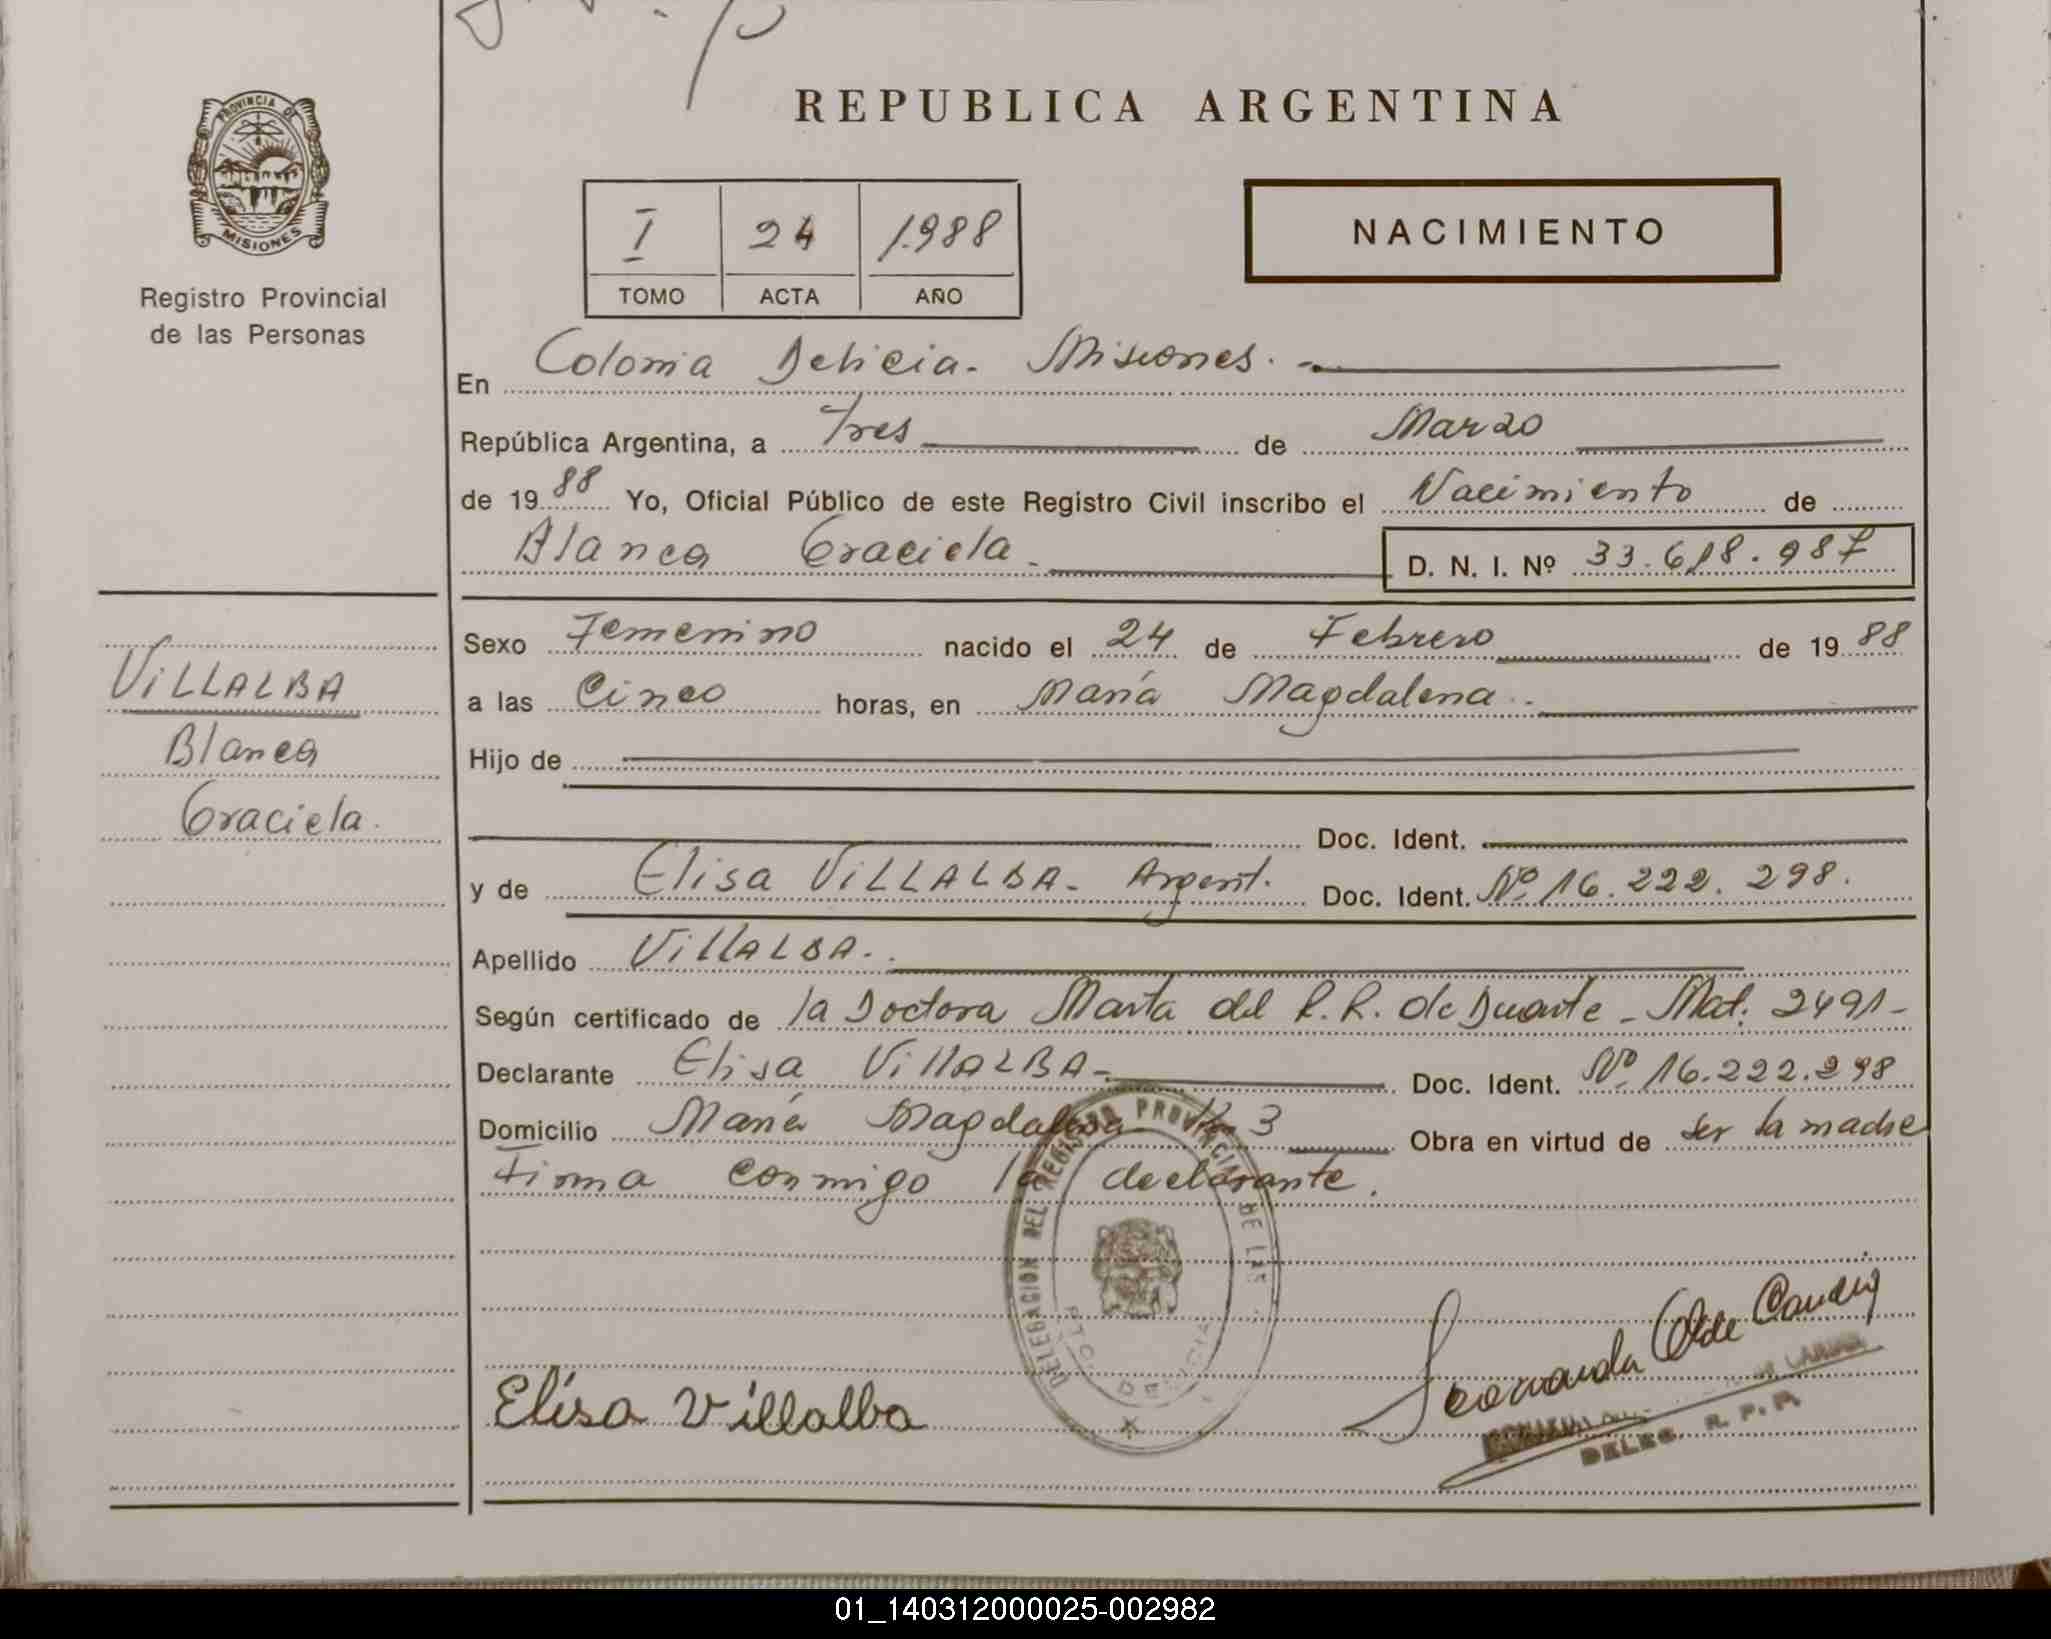 REPUBLICA ARGENTINA
PROVINCIA DE
MISIONES
Registro Provincial
de las Personas
I 24 1.988
TOMO ACTA AÑO
NACIMIENTO
En Colonia Delicia - Misiones. -
República Argentina, a Tres de Marzo
de 19 88 Yo, Oficial Público de este Registro Civil inscribo el Nacimiento de
Blanca Graciela - D. N. I. Nº 33.618.987
Sexo Femenino nacido el 24 de Febrero de 19 88
a las Cinco horas, en María Magdalena.
Hijo de
Doc. Ident.
y de Elisa VILLALBA - Argent. Doc. Ident. Nº 16.222.298.
Apellido VILLALBA.
Según certificado de la Doctora Marta del R.R. de Duarte - Mat. 2491-
Declarante Elisa VILLALBA - Doc. Ident. Nº 16.222.298
Domicilio María Magdalena 3 Obra en virtud de ser la madre
Firma conmigo la declarante.
VILLALBA
Blanca
Graciela.
DELEGACION DEL REGISTRO PROVINCIAL DE LAS
DELICIA
Elisa Villalba
DELEG. R. P. P.
01_140312000025-002982